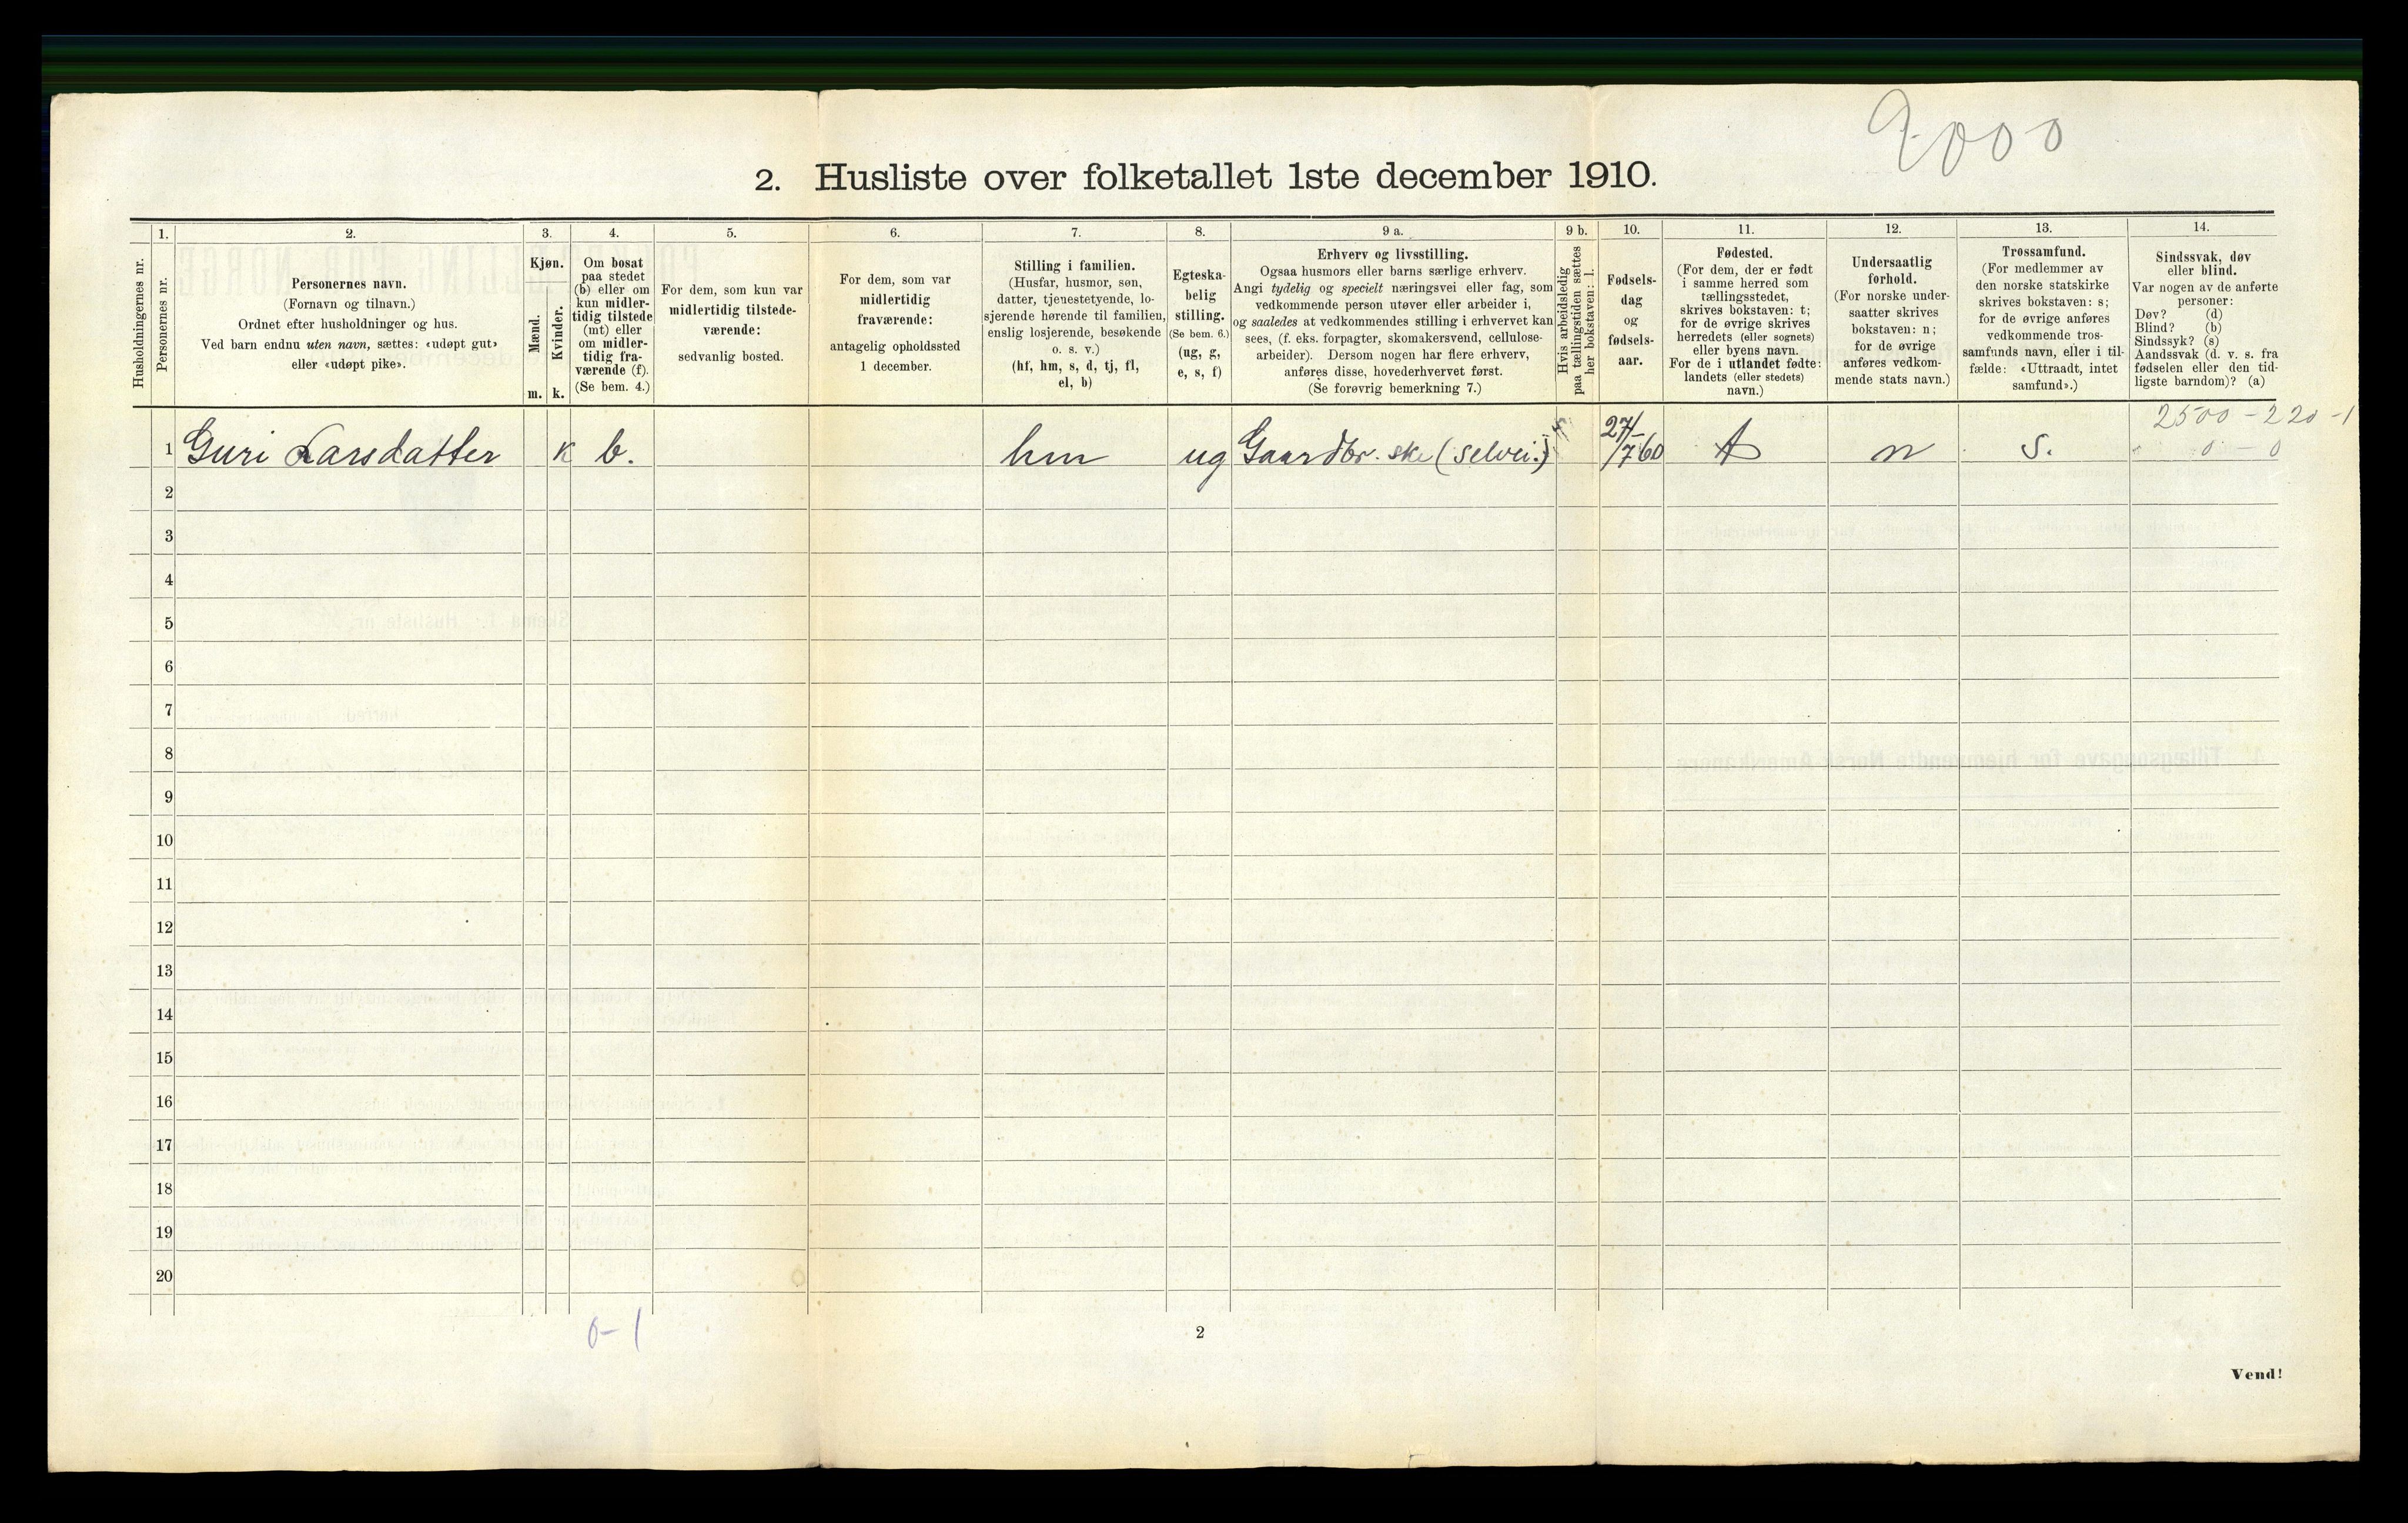 9000
2. Husliste over folketallet 1ste december 1910.
1. 2. 3. 4. 5. 6. 7. 8. 9 a. 9 b. 10. 11. 12. 13. 14.
Husholdningernes nr.
Personernes nr.
Personernes navn.
(Fornavn og tilnavn.)
Ordnet efter husholdninger og hus.
Ved barn endnu uten navn, sættes: «udøpt gut»
eller «udøpt pike».
Kjøn.
Mænd.
Kvinder.
m. k.
Om bosat
paa stedet
(b) eller om
kun midler-
tidig tilstede
(mt) eller
om midler-
tidig fra-
værende (f).
(Se bem. 4.)
For dem, som kun var
midlertidig tilstede-
værende:
sedvanlig bosted.
For dem, som var
midlertidig
fraværende:
antagelig opholdssted
1 december.
Stilling i familien.
(Husfar, husmor, søn,
datter, tjenestetyende, lo-
sjerende hørende til familien,
enslig losjerende, besøkende
o. s. v.)
(hf, hm, s, d, tj, fl,
el, b)
Egteska-
belig
stilling.
(Se bem. 6.)
(ug, g,
e, s, f)
Erhverv og livsstilling.
Ogsaa husmors eller barns særlige erhverv.
Angi tydelig og specielt næringsvei eller fag, som
vedkommende person utøver eller arbeider i,
og saaledes at vedkommendes stilling i erhvervet kan
sees, (f. eks. forpagter, skomakersvend, cellulose-
arbeider). Dersom nogen har flere erhverv,
anføres disse, hovederhvervet først.
(Se forøvrig bemerkning 7.)
Hvis arbeidsledig
paa tællingstiden sættes
her bokstaven: l.
Fødsels-
dag
og
fødsels-
aar.
Fødested.
(For dem, der er født
i samme herred som
tællingsstedet,
skrives bokstaven: t;
for de øvrige skrives
herredets (eller sognets)
eller byens navn.
For de i utlandet fødte:
landets (eller stedets)
navn.)
Undersaatlig
forhold.
(For norske under-
saatter skrives
bokstaven: n;
for de øvrige
anføres vedkom-
mende stats navn.)
Trossamfund.
(For medlemmer av
den norske statskirke
skrives bokstaven: s;
for de øvrige anføres
vedkommende tros-
samfunds navn, eller i til-
fælde: «Uttraadt, intet
samfund».)
Sindssvak, døv
eller blind.
Var nogen av de anførte
personer:
Døv? (d)
Blind? (b)
Sindssyk? (s)
Aandssvak (d. v. s. fra
fødselen eller den tid-
ligste barndom)? (a)
2500 - 220 - 1
1 Guri Larsdatter k b. hm ug Gaardbr.ske (selvei.) 27/7 60 t n s. 0 - 0
2
3
4
5
6
7
8
9
10
11
12
13
14
15
16
17
18
19
20
0-1
2
Vend!